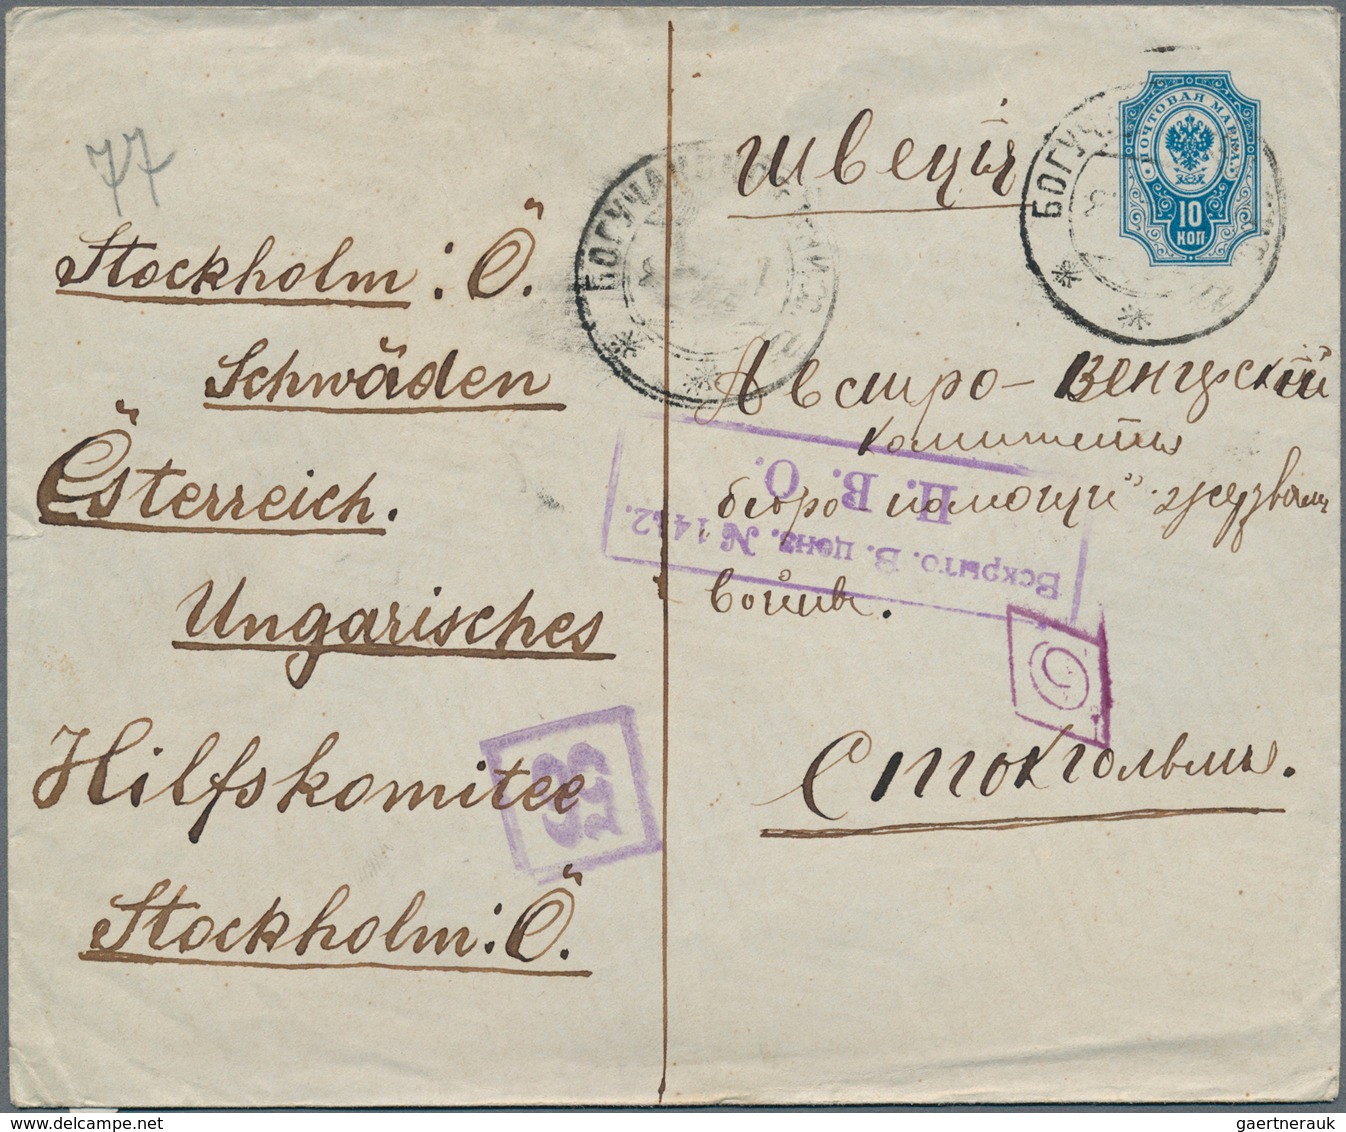 77
Stockholm : Ö.
Schwäden
Österreich.
Ungarisches
Hilfskomitee
Stockholm : Ö.
Швеція
ПОЧТОВАЯ МАРКА.
10
КОП
БОГУЧ
БОГУЧА
Австро-Венгрскій
комитетъ
бюро „помощи"
войны.
Стокгольмъ.
Вскрыто. В. ценз. № 1442.
П. В. О.
gaertnerauk